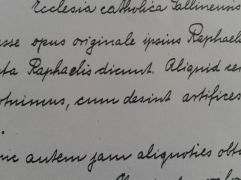 Ecclesia catholica Tallinensis
sse opus originale ipsius Raphaeli
ta Raphaelis dicunt. Aliquid cer
otuimus, cum desint artifices
nic autem jam aliquoties obtu